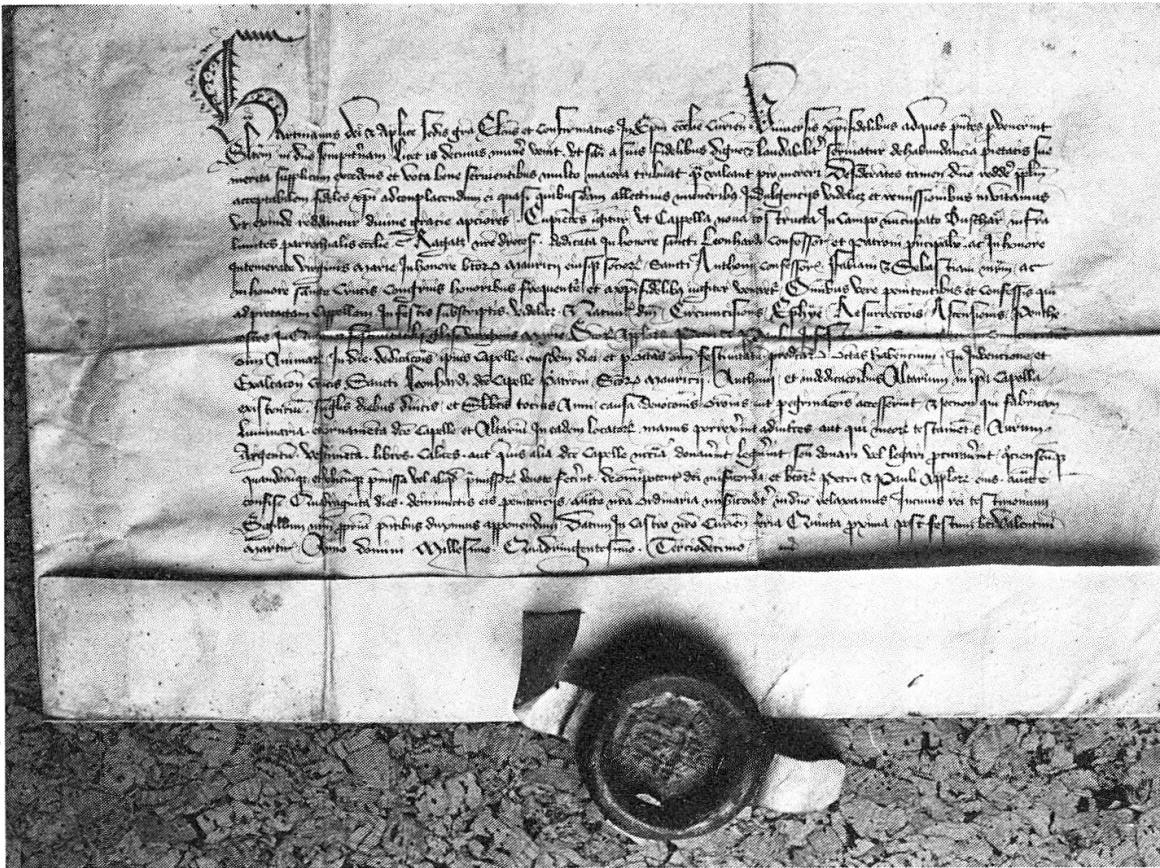 Hartmannus dei et Aplice Sedis gra Elcus et Confirmatus In Epm ecclie Curien Universis xpifidelibus ad quos pntes pvenerint
Saltem in dno sempitnam Licet is de cuius mune venit ut sibi a suis fidelibus digne laudabilit serviatur de habundancia pietatis sue
merita supplicum excedens et vota bene servientibus multo maiora tribuat q valeant promereri Desiderantes tamen dno redde pplm
acceptabilem fideles xpi ad complacendum ei quasi quibusdam allectivis muneribus Indulgenciis videlicet et remissionibus invitamus
ut exinde reddantur divine gracie apciores Cupientes igitur ut Cappella nova constructa In Campo nuncupato infra
limites parrochialis ecclie Ragatz nre dyoc dedicata In honore sancti Leonhardi Confessoris et patroni principalis ac In honore
Intemerate virginis Marie In honore btor Mauricii eiusq socior Sancti Anthonii confessoris Fabiani et Sebastiani mrm ac
In honore sancte Crucis Congruis honoribus frequentet et a xpifidelibus iugiter veneret Omnibus vere penitentibus et Confessis qui
ad pretactam Cappellam In festis subscriptis videlicet Nativit dni Circumcisionis Ephye Resurrectois Ascensionis Penthe
omi Animar In die dedicacois ipius Capelle eiusdem diei et p octavas omi festivitatu predictar octavas habencium In Invencione et
Exaltacon crucis Sancti Leonhardi dce Capelle Patroni Scor Mauricii Anthonii et in dedicacoibus Altarium in ipa Capella
existencium singlis diebus dnicis et Sabbatis tocius Anni causa devocionis oronis aut pegrinacois accesserint et necnon qui fabricam
luminaria ornamenta dce Capelle et Altariu In eadem locator manus porrexint adiutrices aut qui in eor testamentis Aurum
Argentu vestimenta libros Calices aut quis alia dce Capelle necria donavint legavint seu donari vel legari pcuravint quociensqq
quandocuqq et ubicuqq pmissa vel aliqd pmissor devote fecint de omipotentis dei misericordia et btor Petri et Pauli Applor eius aucte
confisi Quadraginta dies de iniunctis eis penitenciis aucte nra ordinaria misericordit in dno relaxamus In cuius rei testimonium
Sigillum nrm pntibus duximus appendendum Datum In Castro nro Curien feria Quinta proxima post festum bti Valentini
martir Anno domini Millesimo Quadringentesimo Terciodecimo